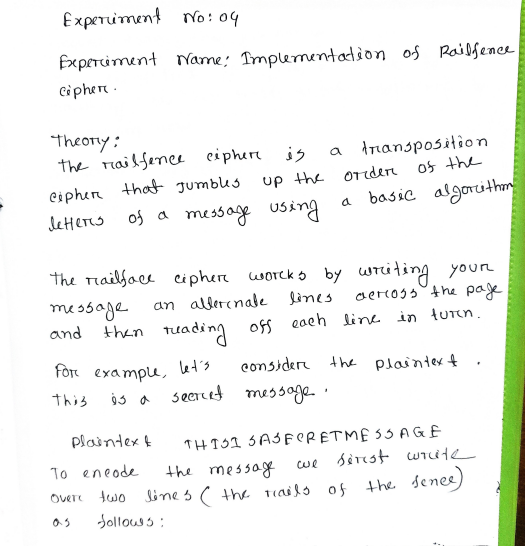 Experiment No: 04
Experiment Name: Implementation of Railfence
cipher.
Theory:
The railfence cipher is a transposition
cipher that jumbles up the order of the
letters of a message using a basic algorithm
The railface cipher works by writing your
message an alternate lines across the page
and then reading off each line in turn.
For example, let's consider the plaintext.
This is a secret message.
Plaintext THISISASECRETMESSAGE
To encode the message we first write
over two lines (the rails of the fence)
as follows: